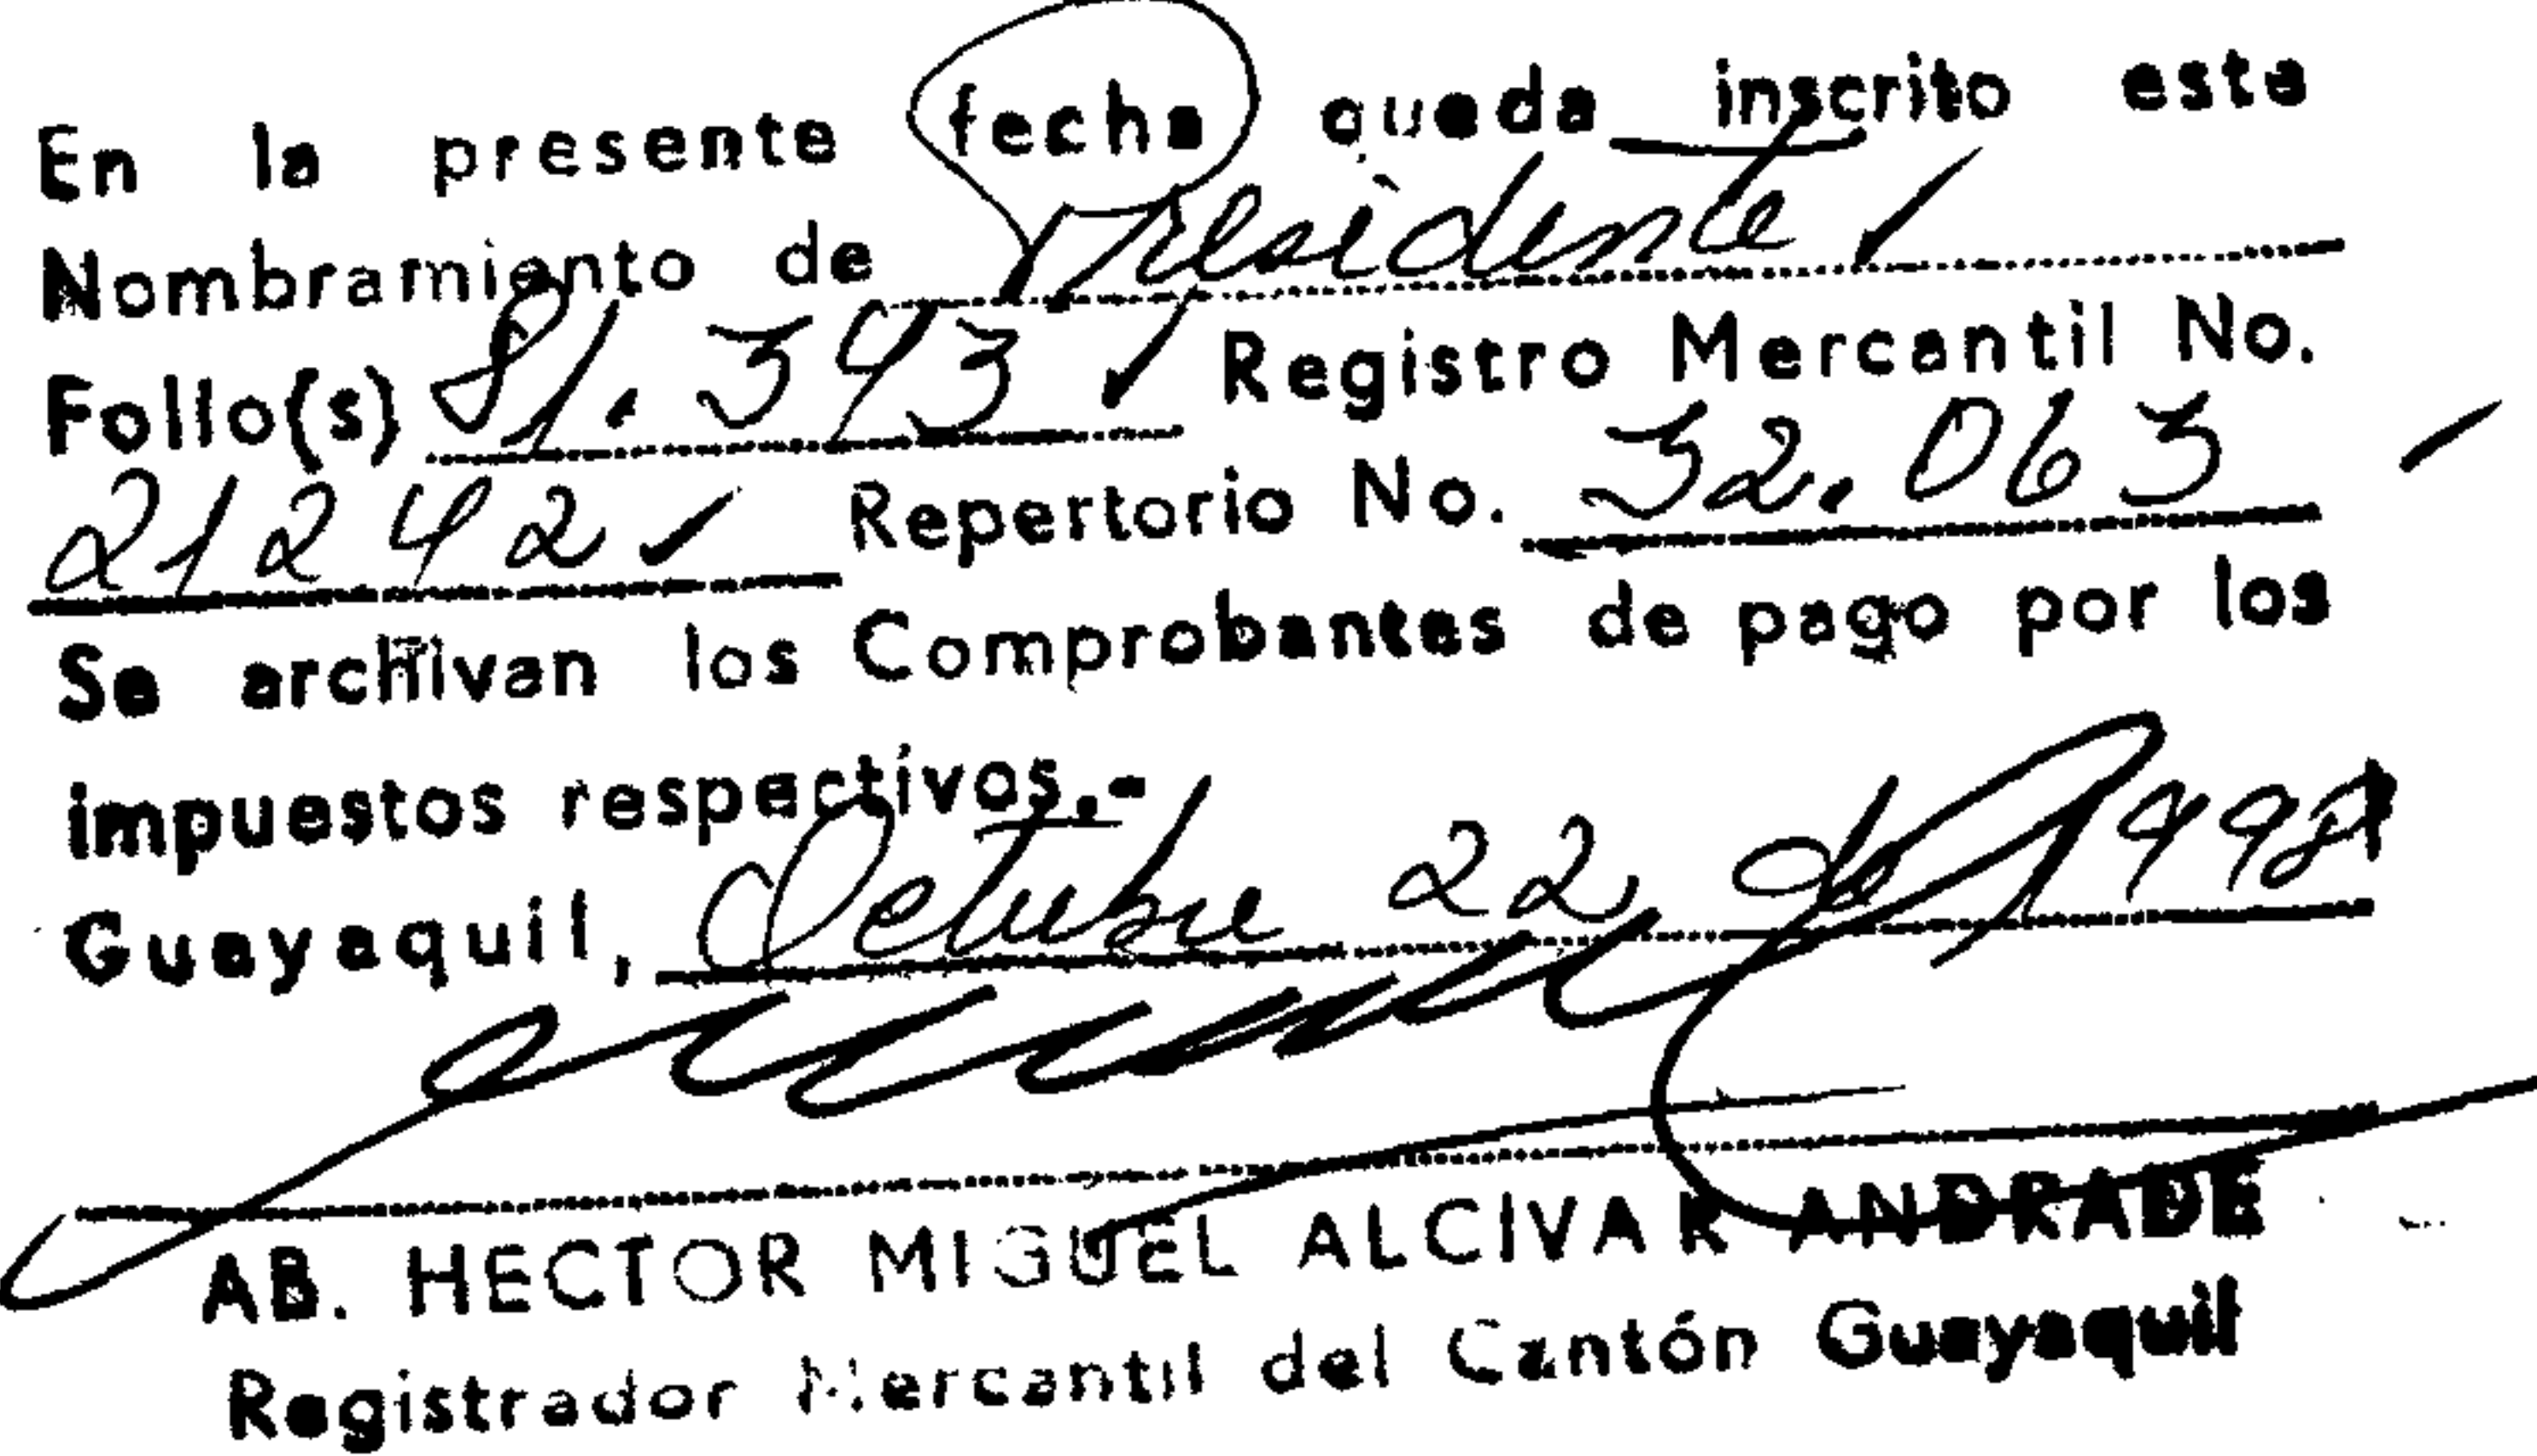 En la presente fecha queda inscrito este
Nombramiento de Presidente
Folio(s) 81.343 Registro Mercantil No.
21242 Repertorio No. 32.063
Se archivan los Comprobantes de pago por los
impuestos respectivos.-
Guayaquil, Octubre 22 de 1998
AB. HECTOR MIGUEL ALCIVAR ANDRADE
Registrador Mercantil del Cantón Guayaquil